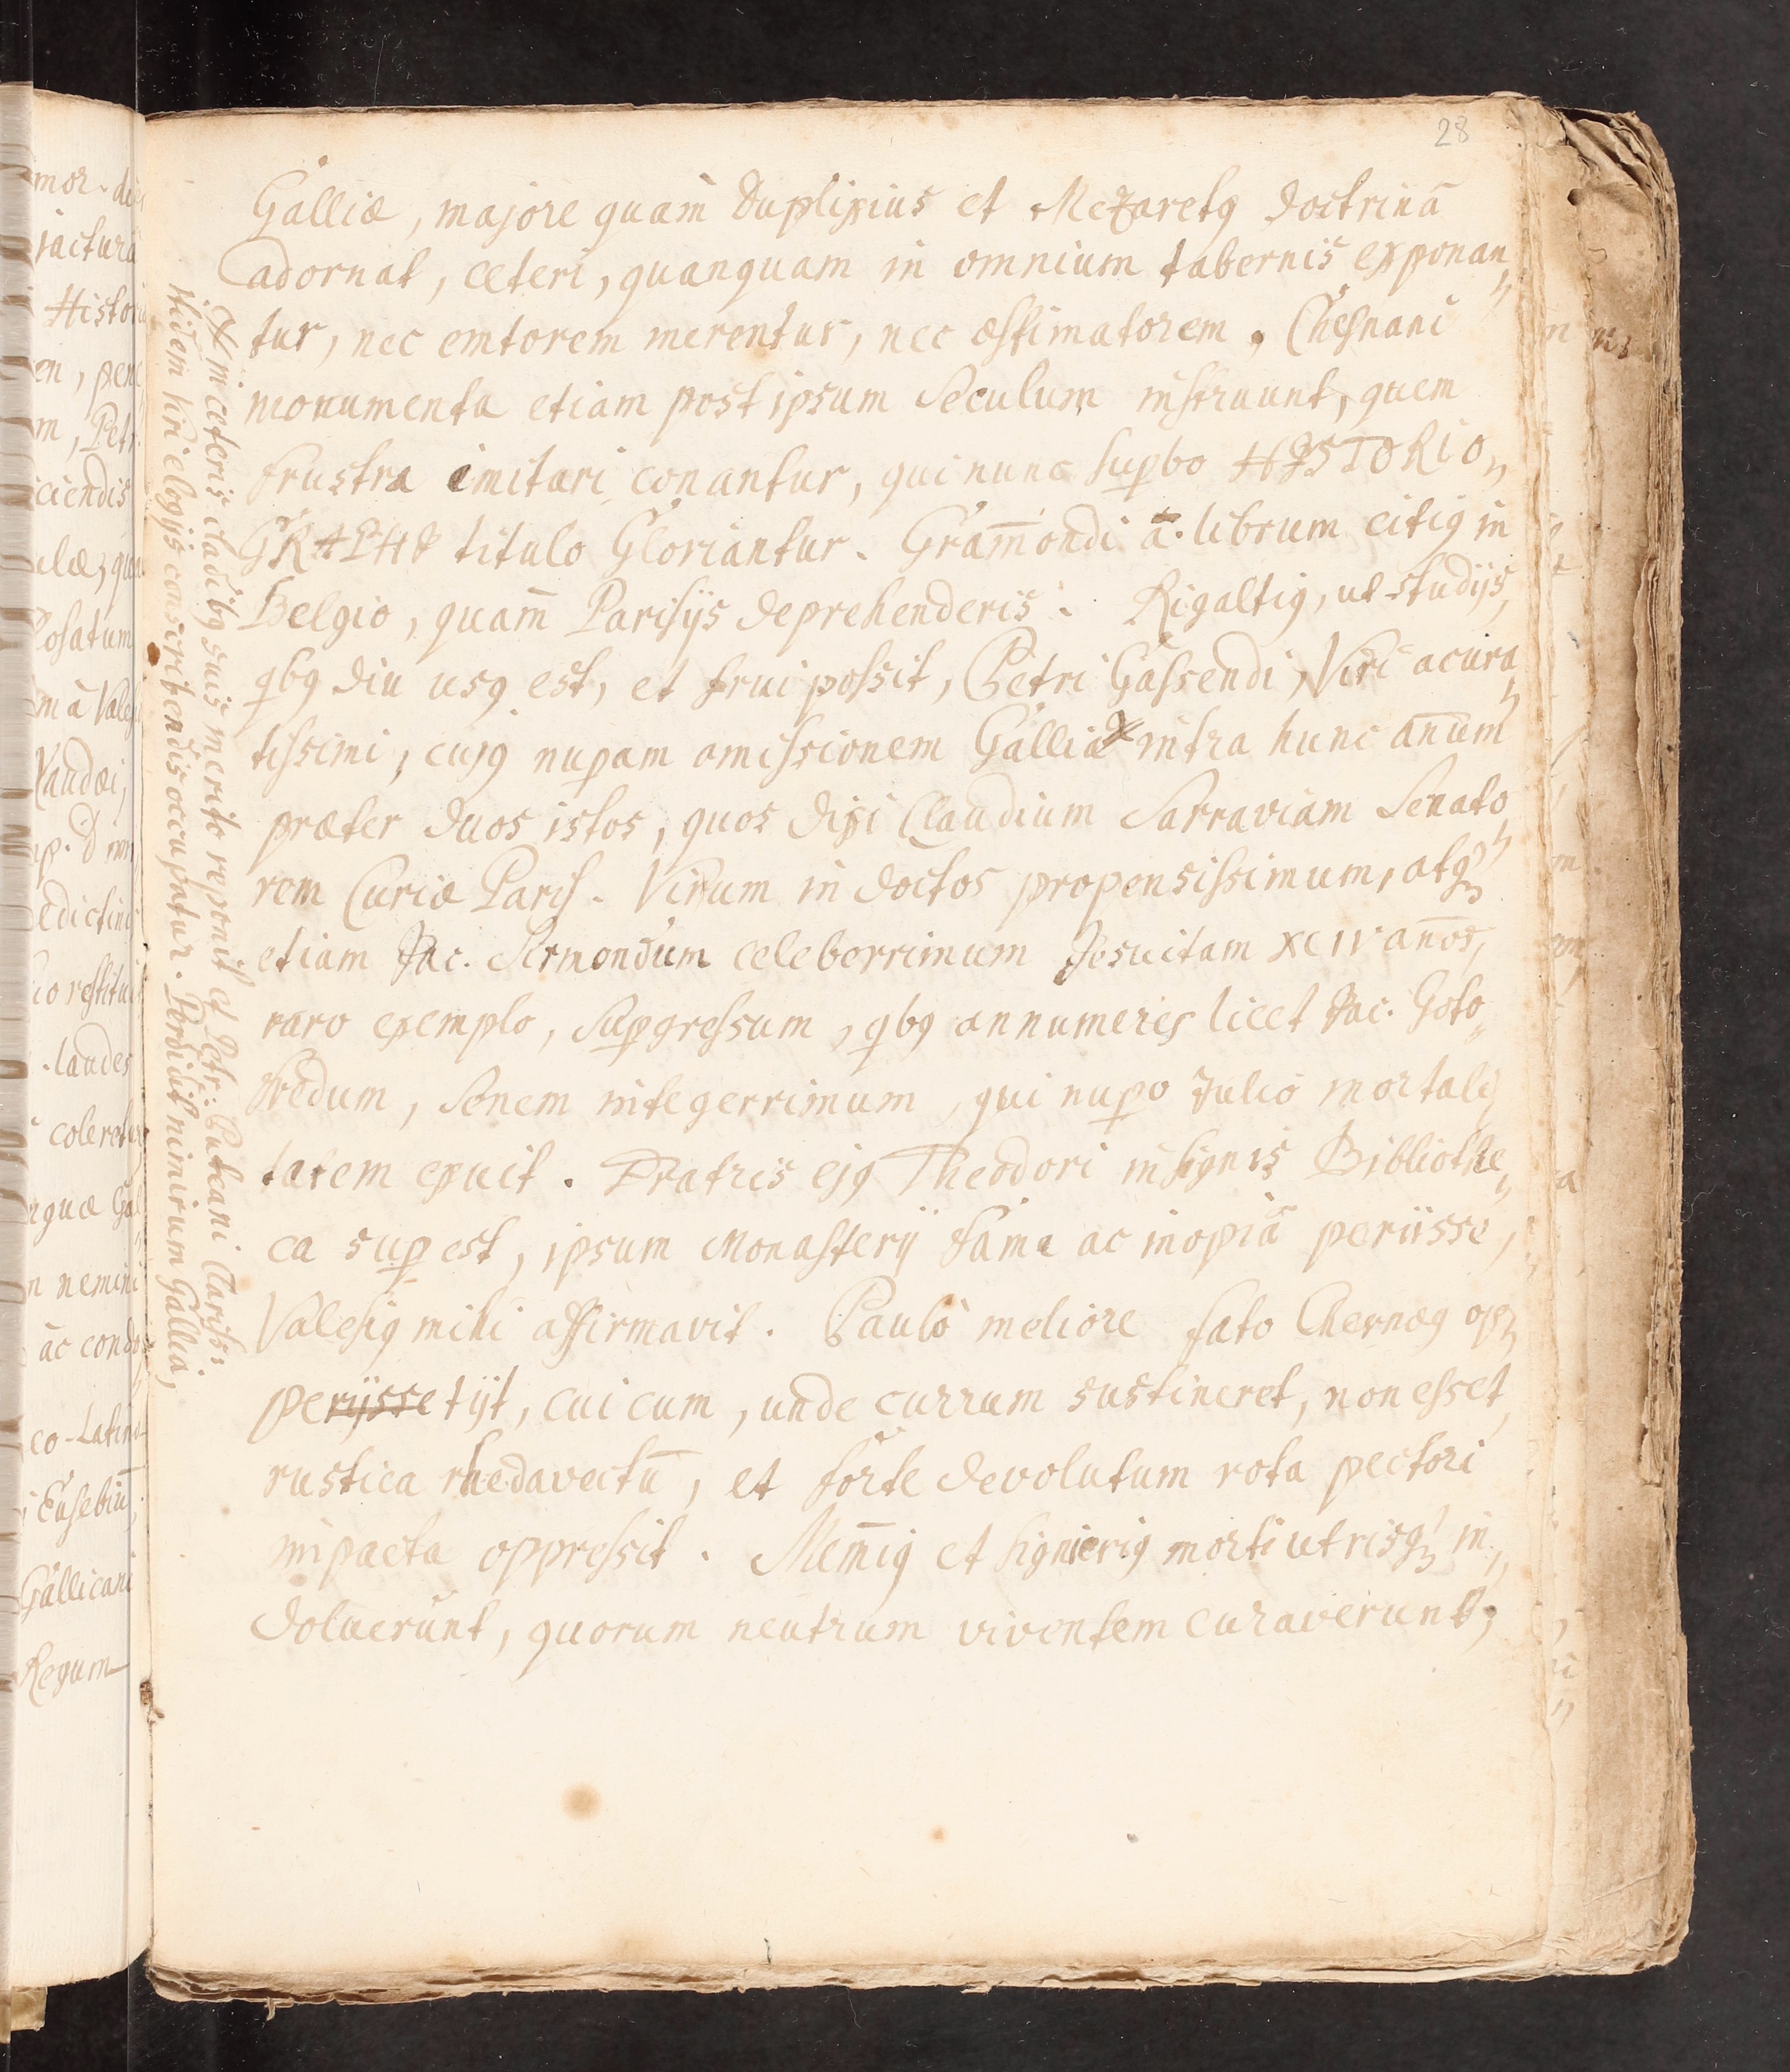 28
Galliæ, majore quam Duplixius et Mezaretꝰ doctrinâ
adornat, ceteri, quanquam in omnium tabernis exponan„
tur, nec emtorem merentur, nec æstimatorem, Chesnani
monumenta etiam post ipsum seculum instruunt, quem
frustra imitari conantur, qui nunc supbo HISTORIO„
GRAPHI titulo Gloriantur. Gram̄ondi a. librum citiꝰ in
Belgio, quam̄ Parisijs deprehenderis. Rigaltiꝰ, ut studijs,
qbꝰ diu usꝰ est, et frui possit, Petri Gassendi, Viri acura„
tissimi, cujꝰ nupam amissionem Gallia X intra hunc an̄um
præter duos istos, quos dixi Claudium Sarraviam Senato„
rem Curiæ Paris. Virum in doctos propensissimum, atq₃
etiam Jac. Sirmondum celeberrimum Jesuitam XCIV an̄os,
raro exemplo, supgressum, qbꝰ annumeres licet Jac. Goto„
fredum, Senem integerrimum, qui nupo Julio mortali„
tatem exuit. Fratris ejꝰ Theodori insignis Bibliothe„
ca supest, ipsum Monasterij fame ac inopiâ periisse,
Valesiꝰ mihi affirmavit. Paulò meliore fato Chernæꝰ op„
perijssetijt, cui cum, unde currum sustineret, non esset,
rustica rhedavectū, et forte devolutum rota pectori
impacta oppressit. Mem̄iꝰ et Signieriꝰ morti utrisq₃ in„
doluerunt, quorum neutrum viventem curaverunt;
X in ceteris cladibꝰ suis merito reponit et Petr: Puteani Clariss:
itidem Viri elogijs conscribendis occupatur. Perdidit nimirum Gallia,